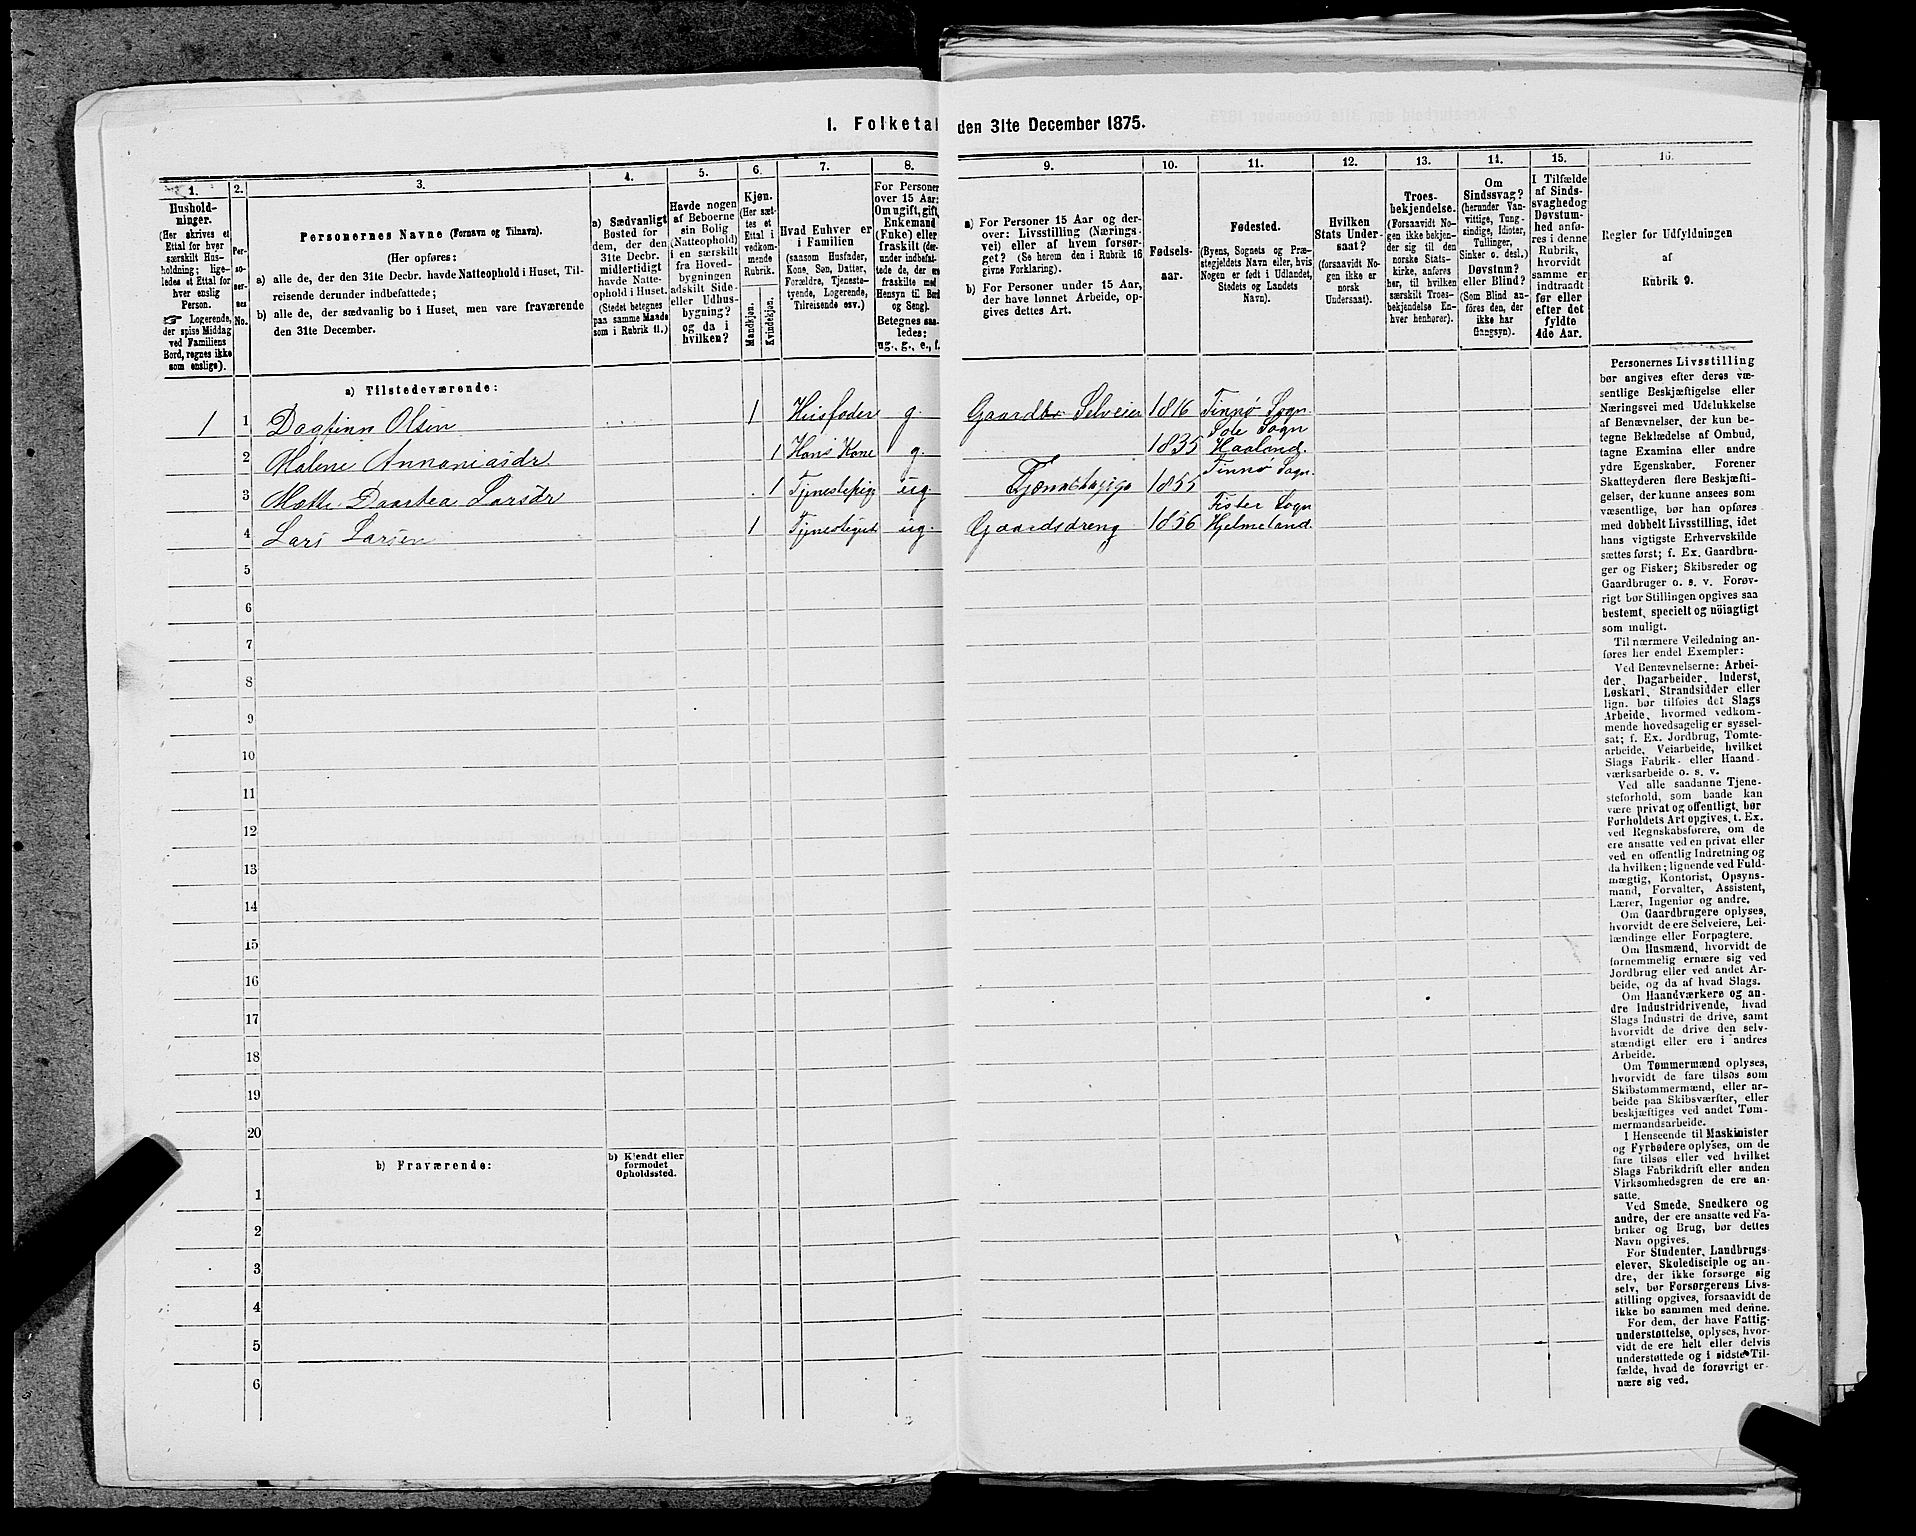 I. Folketal den 31te December 1875.
1.
Hushold-
ninger.
(Her skrives et
Ettal for hver
særskilt Hus-
holdning; lige-
ledes et Ettal for
hver enslig
Person.
☞ Logerende,
der spise Middag
ved Familiens
Bord, regnes ikke
som enslige).
2.
Per-
so-
ner-
nes
No.
3.
Personernes Navne (Fornavn og Tilnavn).
(Her opføres:
a) alle de, der den 31te Decbr. havde Natteophold i Huset, Til-
reisende derunder indbefattede;
b) alle de, der sædvanlig bo i Huset, men vare fraværende
den 31te December.
4.
a) Sædvanligt
Bosted for
dem, der den
31te Decbr.
midlertidigt
havde Natte-
ophold i Huset.
(Stedet betegnes
paa samme Maade
som i Rubrik 11.)
5.
Havde nogen
af Beboerne
sin Bolig
(Natteophold)
i en særskilt
fra Hoved-
bygningen
adskilt Side-
eller Udhus-
bygning?
og da i
hvilken?
6.
Kjøn.
(Her sæt-
tes et
Ettal i
vedkom-
mende
Rubrik.
Mandkjøn.
Kvindekjøn.
7.
Hvad Enhver er
i Familien
(saasom Husfader,
Kone, Søn, Datter,
Forældre, Tjeneste-
tyende, Logerende,
Tilreisende osv.)
8.
For Personer
over 15 Aar:
Om ugift, gift,
Enkemand
(Enke) eller
fraskilt (der-
under indbefat-
tede de, der ere
fraskilte med
Hensyn til Bord
og Seng).
Betegnes saa-
ledes:
ug., g., e., f.
9.
a) For Personer 15 Aar og der-
over: Livsstilling (Nærings-
vei) eller af hvem forsør-
get? (Se herom den i Rubrik 16
givne Forklaring).
b) For Personer under 15 Aar,
der have lønnet Arbeide, op-
gives dettes Art.
10.
Fødsels-
aar.
11.
Fødested.
(Byens, Sognets og Præ-
stegjeldets Navn eller, hvis
Nogen er født i Udlandet,
Stedets og Landets
Navn).
12.
Hvilken
Stats Under-
saat?
(forsaavidt No-
gen ikke er
norsk
Undersaat).
13.
Troes-
bekjendelse.
(Forsaavidt No-
gen ikke bekjen-
der sig til den
norske Stats-
kirke, anføres
her, til hvilken
særskilt Troes-
bekjendelse En-
hver henhører).
14.
Om
Sindssvag?
(herunder Van-
vittige, Tung-
sindige, Idioter,
Tullinger,
Sinker o. desl.)
Døvstum?
eller Blind?
(Som Blind an-
føres den, der
ikke har
Gangsyn).
15.
I Tilfælde
af Sinds-
svaghed og
Døvstum-
hed anfø-
res i denne
Rubrik,
hvorvidt
samme er
indtraadt
før eller
efter det
fyldte
4de Aar.
16.
Regler for Udfyldningen
af
Rubrik 9.
a) Tilstedeværende:
1 1 Dagfinn Olsen 1 Husfader g. Gaardbr Selveier 1816 Finnø Sogn
2 Malene Annaniasdr 1 Hans Kone g. 1835 Sole Sogn Haaland.
3 Mathe Daartea Larsdr 1 Tjenestepige ug Tjenestepige 1855 Finnø Sogn.
4 Lars Larsen 1 Tjenestegut ug. Gaardsdreng 1856 Fister Sogn Hjelmeland
5
6
7
8
9
10
11
12
13
14
15
16
17
18
19
20
b) Fraværende:
b) Kjendt eller
formodet
Opholdssted.
1
2
3
4
5
6
Personernes Livsstilling
bør angives efter deres væ-
sentlige Beskjæftigelse eller
Næringsvei med Udelukkelse
af Benævnelser, der kun be-
tegne Beklædelse af Ombud,
tagne Examina eller andre
ydre Egenskaber. Forener
Skatteyderen flere Beskjæfti-
gelser, der kunne ansees som
væsentlige, bør han opføres
med dobbelt Livsstilling, idet
hans vigtigste Erhvervskilde
sættes først; f. Ex. Gaardbru-
ger og Fisker; Skibsreder og
Gaardbruger o. s. v. Forøv-
rigt bør Stillingen opgives saa
bestemt, specielt og nöiagtigt
som muligt.
Til nærmere Veiledning an-
føres her endel Exempler:
Ved Benævnelserne: Arbei-
der, Dagarbeider, Inderst,
Løskarl, Strandsidder eller
lign. bør tilføies det Slags
Arbeide, hvormed vedkom-
mende hovedsagelig er syssel-
sat; f. Ex. Jordbrug, Tomte-
arbeide, Veiarbeide, hvilket
Slags Fabrik- eller Haand-
værksarbeide o. s. v.
Ved alle saadanne Tjene-
steforhold, som baade kan
være privat og offentligt, bør
Forholdets Art opgives, t. Ex.
ved Regnskabsførere, om de
ere ansatte ved en privat eller
ved en offentlig Indretning og
da hvilken; lignende ved Fuld-
mægtig, Kontorist, Opsyns-
mand, Forvalter, Assistent,
Lærer, Ingeniør og andre.
Om Gaardbrugere oplyses,
hvorvidt de ere Selveiere, Lei-
lændinge eller Forpagtere.
Om Husmænd, hvorvidt de
fornemmelig ernære sig ved
Jordbrug eller ved andet Ar-
beide, og da af hvad Slags.
Om Haandværkere og an-
dre Industridrivende, hvad
Slags Industri de drive, samt
hvorvidt de drive den selv-
stændigt eller ere i andres
Arbeide.
Om Tømmermænd oplyses,
hvorvidt de fare tilsøs som
Skibstømmermænd, eller ar-
beide paa Skibsværfter, eller
beskjæftiges ved andet Tøm-
mermandsarbeide.
I Henseende til Maskinister
og Fyrbødere oplyses, om de
fare tilsøs eller ved hvilket
Slags Fabrikdrift eller anden
Virksomhedsgren de ere an-
satte.
Ved Smede, Snedkere og
andre, der ere ansatte ved Fa-
briker og Brug, bør dettes
Navn opgives.
For Studenter, Landbrugs-
elever, Skoledisciple og an-
dre, der ikke forsørge sig
selv, bør Forsørgerens Livs-
stilling opgives, forsaavidt de
ikke bo sammen med denne.
For dem, der have Fattig-
understøttelse, oplyses, hvor-
vidt de ere helt eller delvis
understøttede og i sidste Til-
fælde, hvad de forøvrigt er-
nære sig ved.